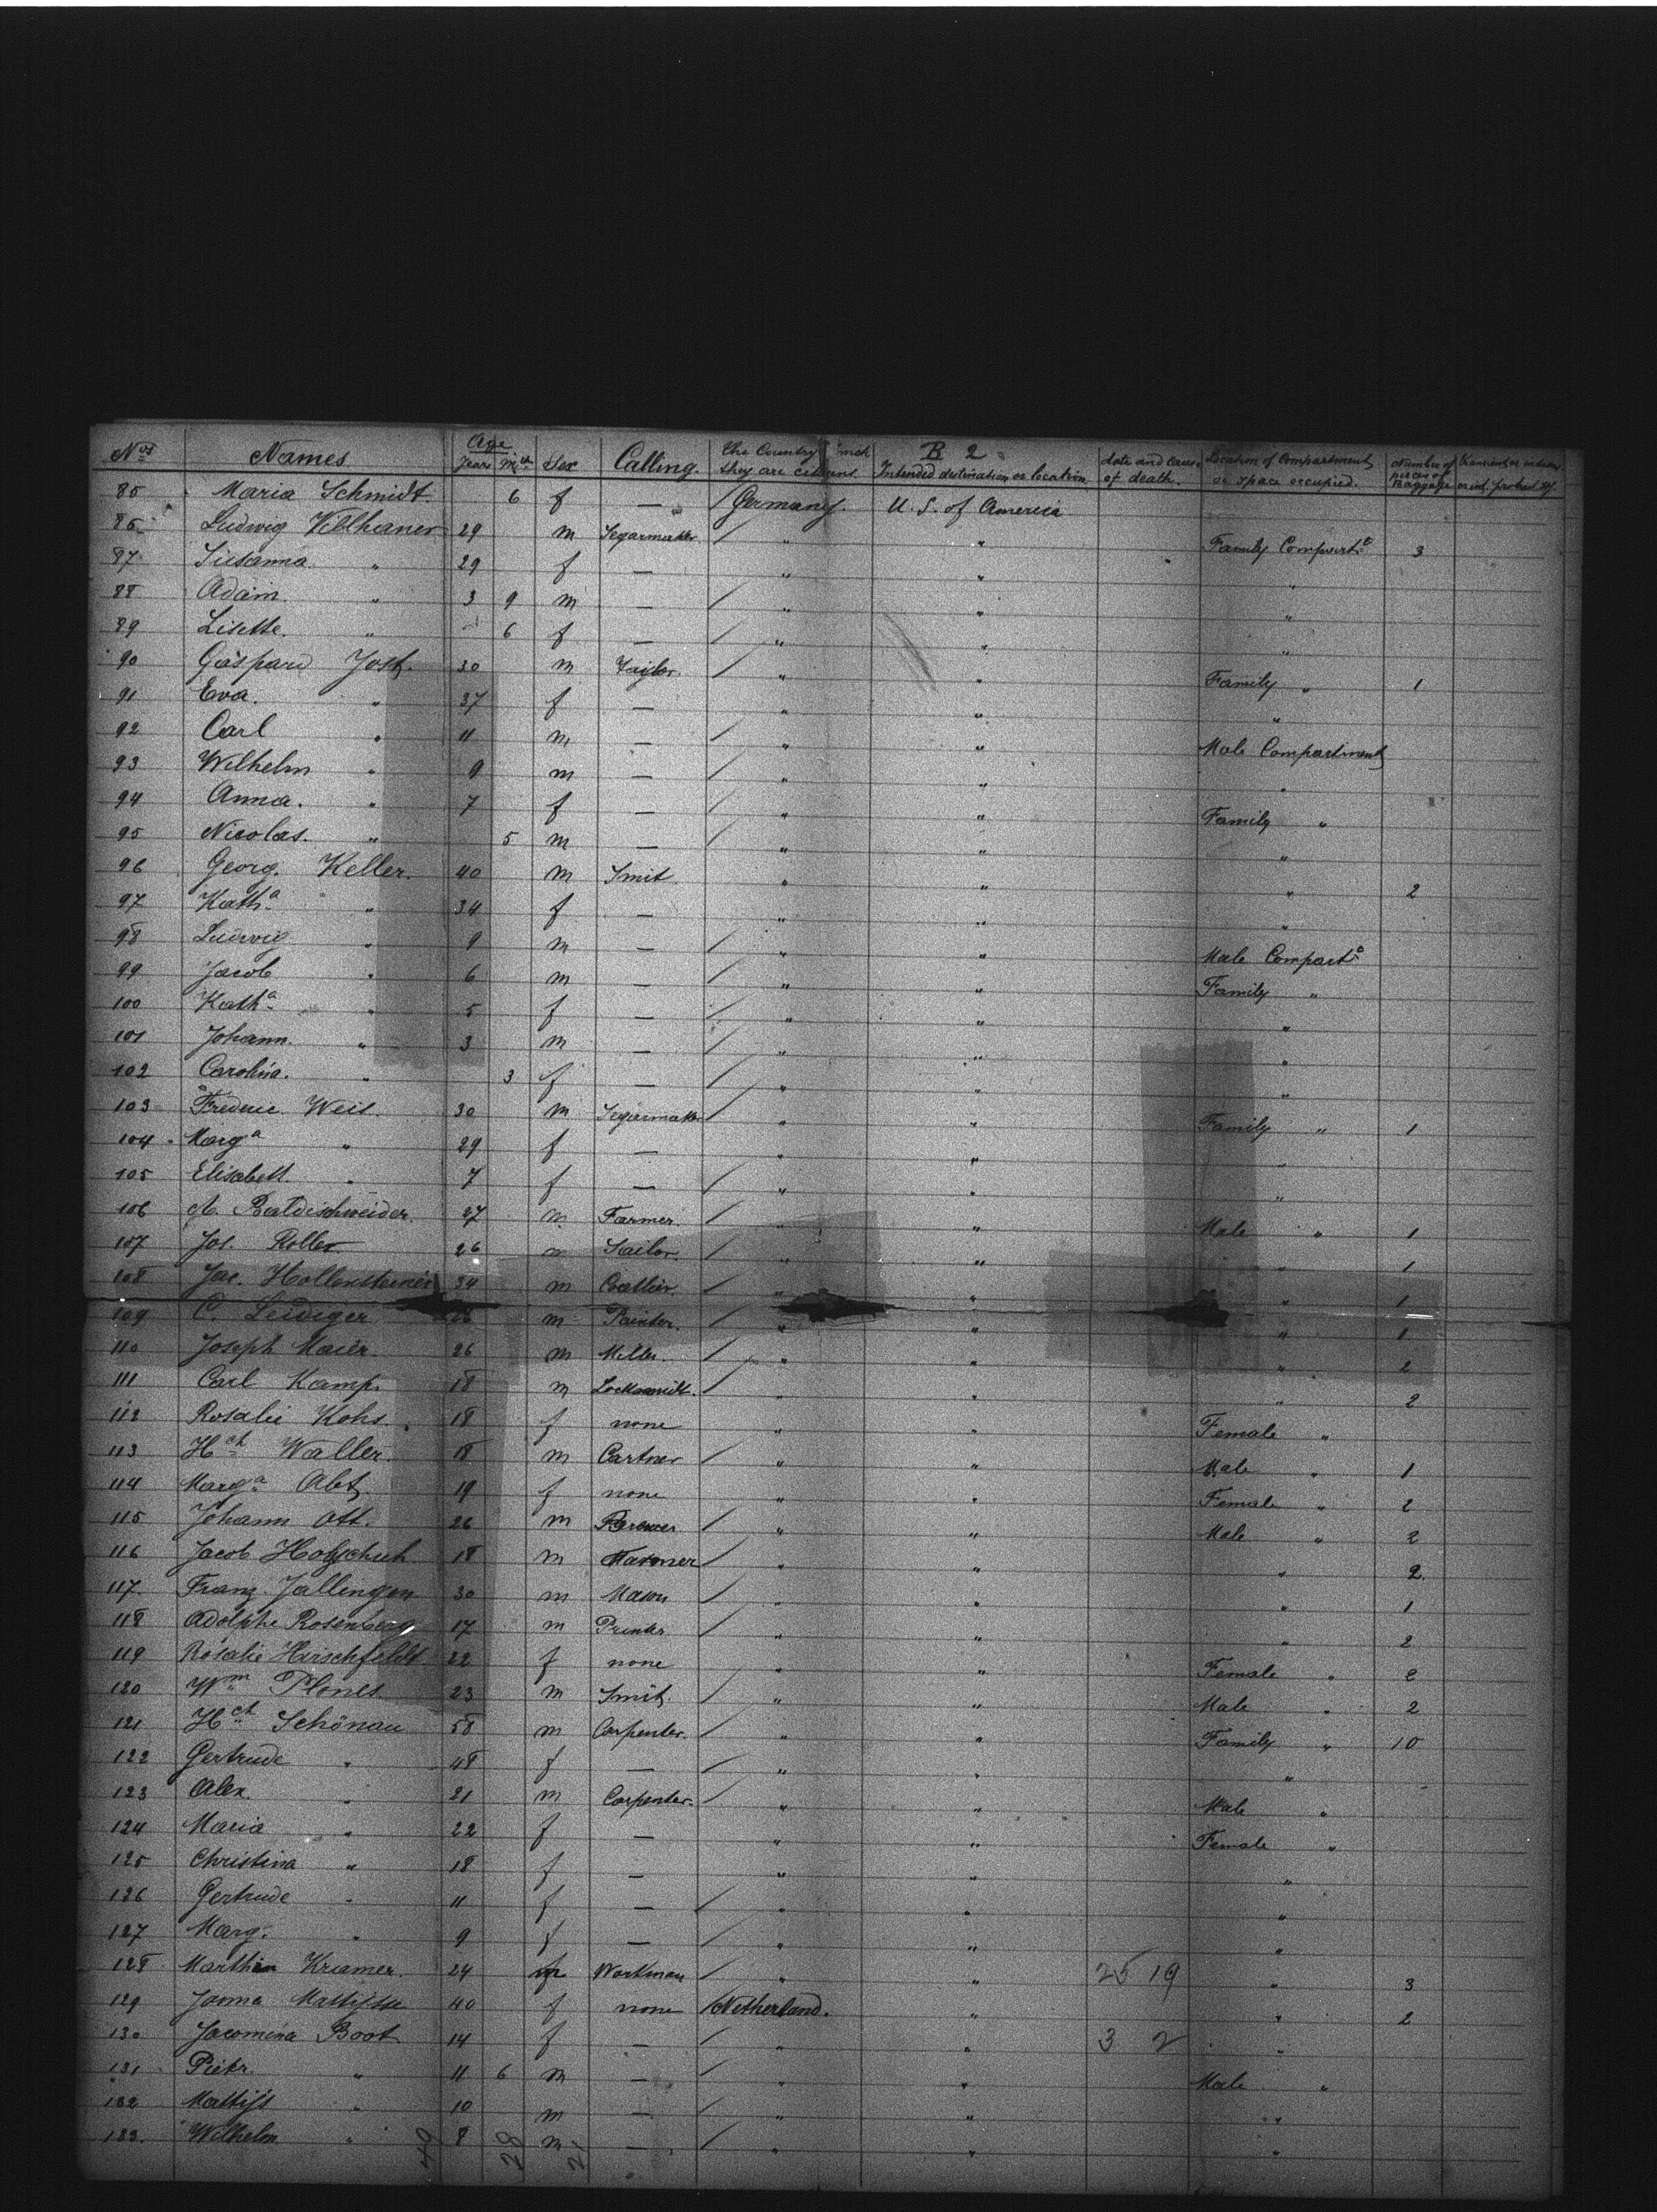 B 2
Nos Names Age Years Mth Sex Calling. The Country they are citizens. Intended destination or location date and cause of death. Location of Compartment or space occupied. Number of pieces of Baggage
85 Maria Schmidt. 6 f — Germany. U. S. of America
86 Ludwig 29 m Segarmaker " " Family Compartt 3
87 Susanna " 29 f — " " "
88 Adam. " 3 9 m — " " "
89 Lisette. " 6 f — " " "
90 Gaspard Jost. 30 m Taylor " " Family " 1
91 Eva. " 37 f — " " "
92 Carl " 11 m — " " Male Compartment
93 Wilhelm " 9 m — " " "
94 Anna. " 7 f — " " Family "
95 Nicolas. " 5 m — " " "
96 Georg. Keller. 40 m Smit " " " 2
97 Katha " 34 f — " " "
98 Ludwig " 9 m — " " Male Compartt
99 Jacob " 6 m — " " Family "
100 Katha " 5 f — " " "
101 Johann. " 3 m — " " "
102 Carolina. " 3 f — " " "
103 Frederic Weis. 30 m Segarmaker " " Family " 1
104 Marga " 29 f — " " "
105 Elisabett. " 7 f — " " "
106 A. Baldischweider. 27 m Farmer. " " Male " 1
107 Jos. Roller 26 m Sailor. " " " 1
108 Jac. Hollensteiner 34 m " " " 1
109 C. Leidiger m Painter. " " " 1
110 Joseph Maier. 26 m Miller. " " " 2
111 Carl Kamp. 18 m Locksmidt. " " " 2
112 Rosalie Kohs 18 f none " " Female "
113 Hch Waller. 18 m Cartner " " Male " 1
114 Marga Abt. 19 f none " " Female " 2
115 Johann Ott. 26 m Brewer " " Male " 2
116 Jacob Holzschuh 18 m " " " 2
117 Franz Jallingen 30 m Mason " " " 1
118 Adolphe Rosenberg 17 m Printer " " " 2
119 Rosalie Hirschfeldt 22 f none " " Female " 2
120 Wm Plones. 23 m Smit. " " Male " 2
121 Hch Schönau 58 m Carpenter. " " Family " 10
122 Gertrude " 48 f — " " "
123 Alex. " 21 m Carpenter. " " Male "
124 Maria " 22 f — " " Female "
125 Christina " 18 f — " " "
126 Gertrude " 11 f — " " "
127 Marg. " 9 f — " " "
128 Marthin Kramer. 24 m Workman " " 25 19 " 3
129 Janna Mattijsse 40 f none Netherland. " " 2
130 Jacomina Boot 14 f — " " 3 2 "
131 Pieter. " 11 6 m — " " Male "
132 Mattijs " 10 m — " " "
133. Wilhelm " 8 m — " " "
49 28 21